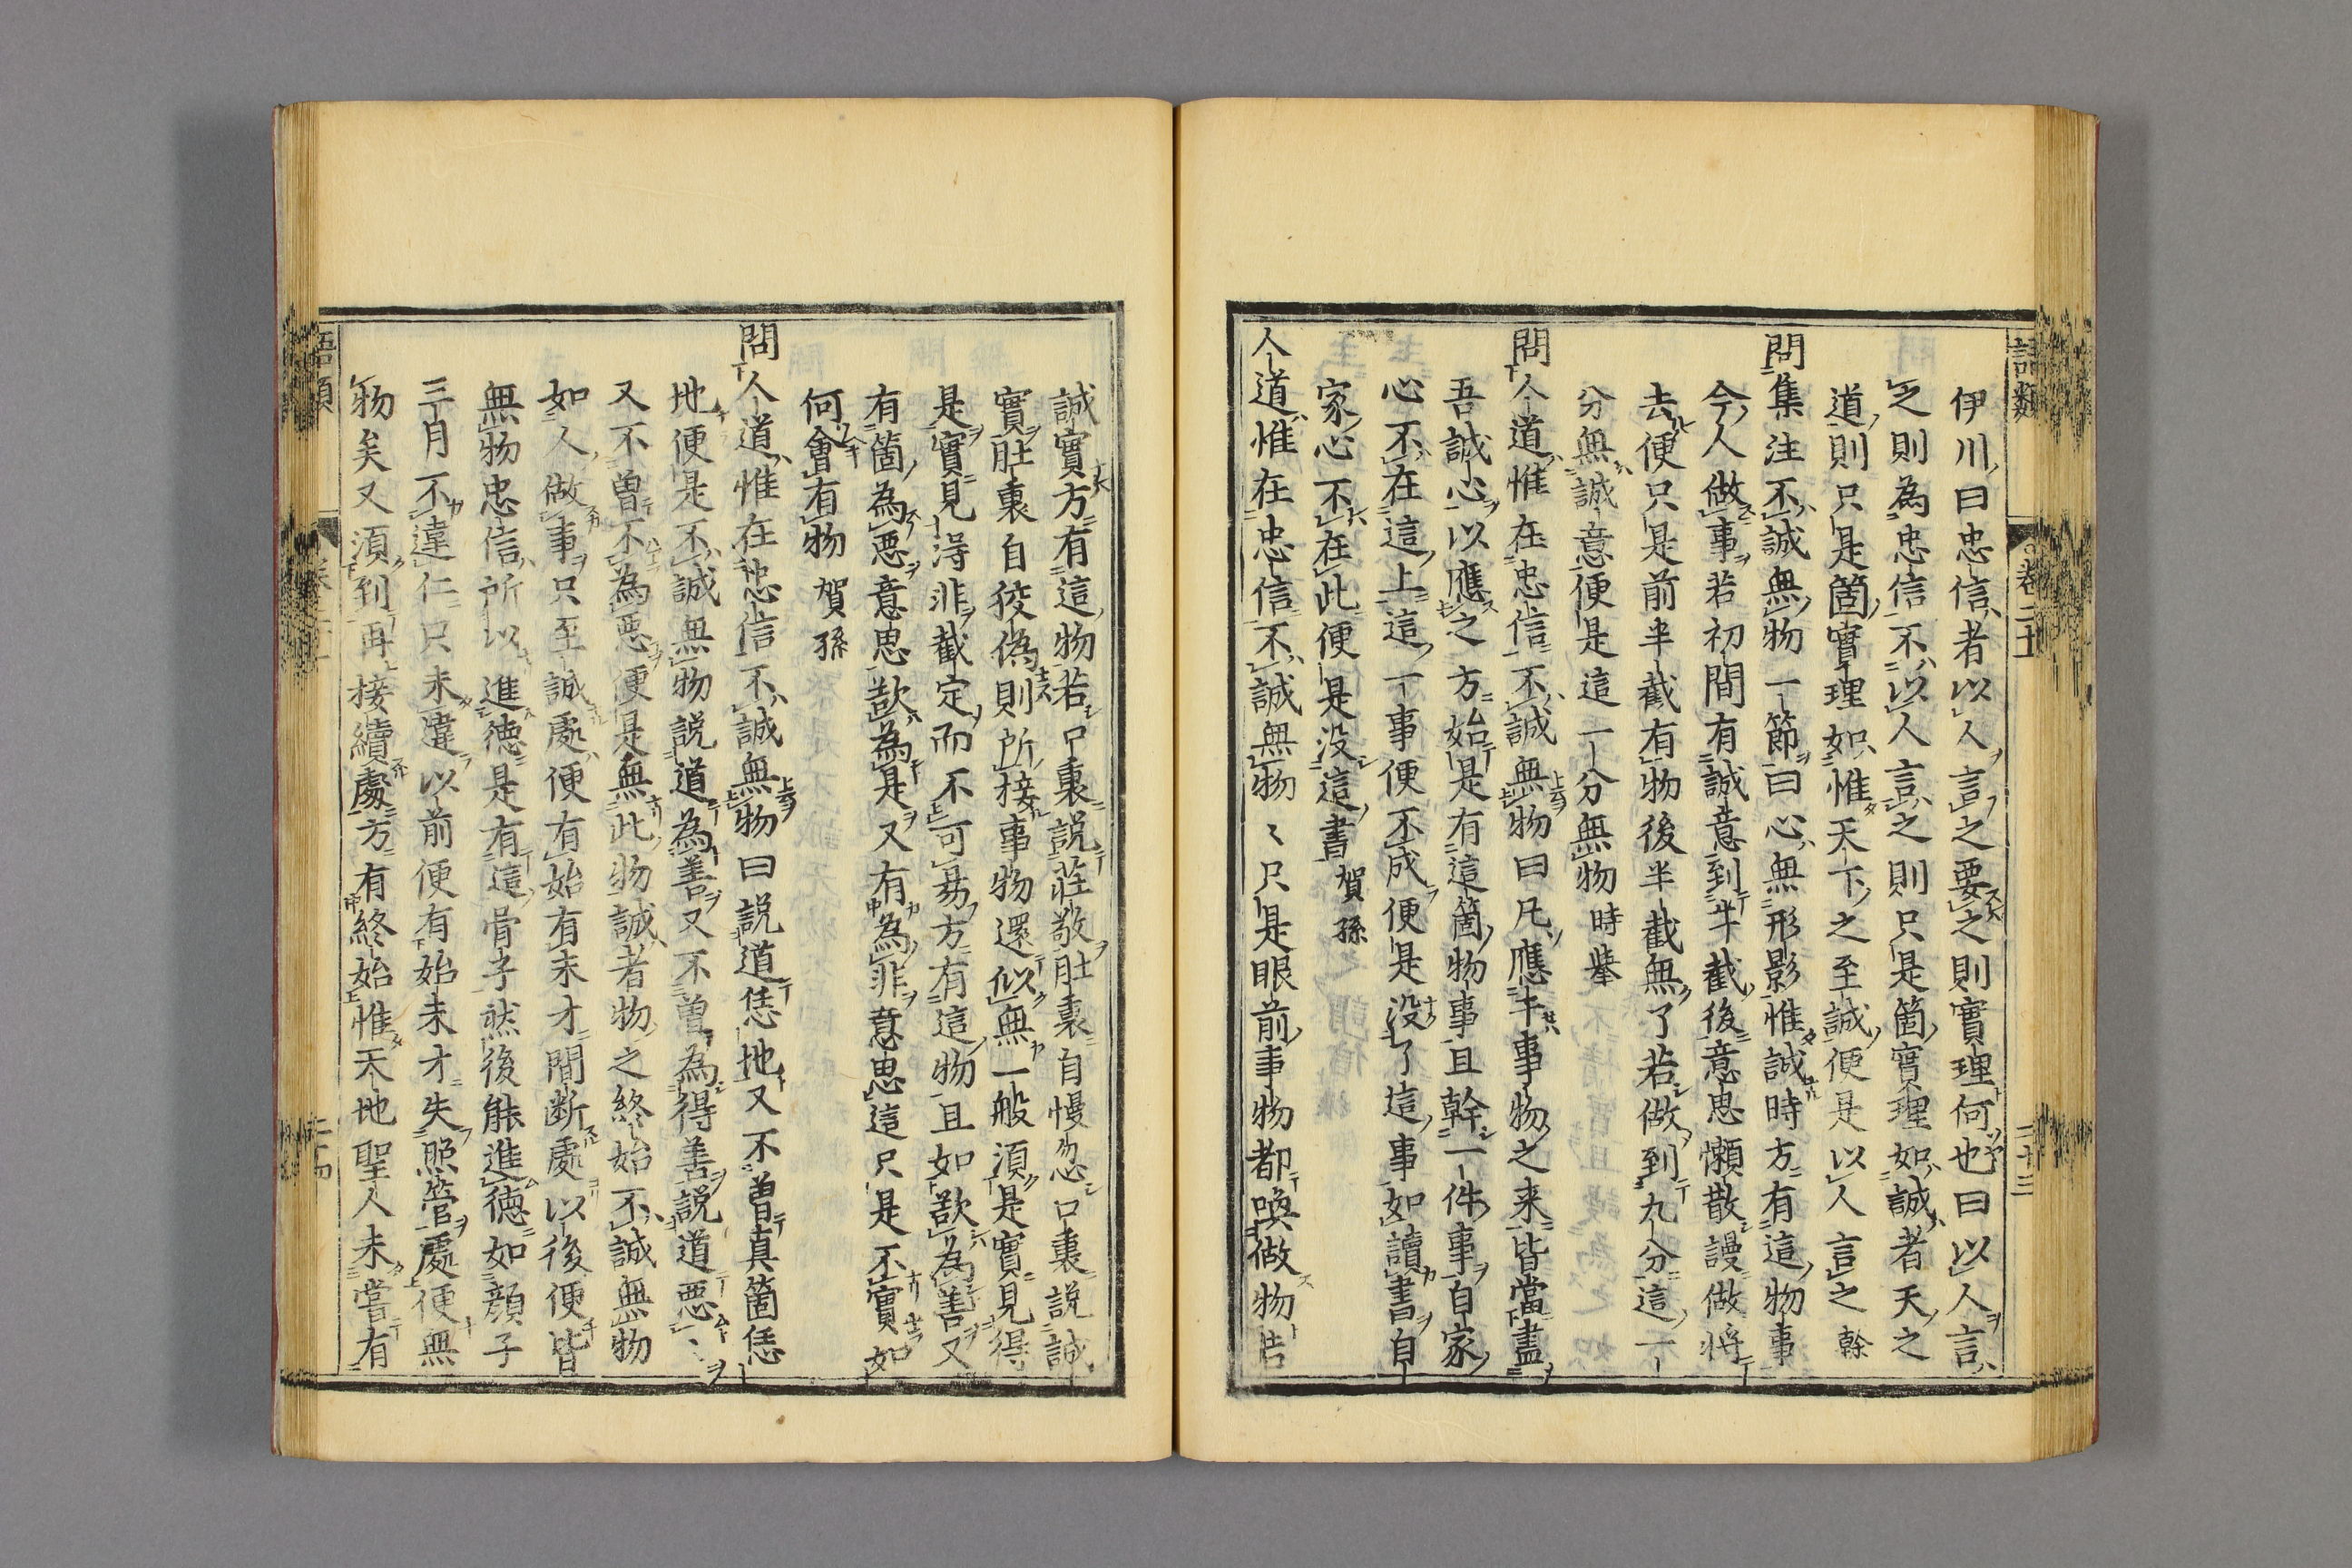 語類
卷二十一
二十三
伊川曰忠信者以人言之要之則實理何也曰以人言
之則為忠信不以人言之則只是箇實理如誠者天之
道則只是箇實理如惟天下之至誠便是以人言之 榦
問集注不誠無物一節曰心無形影惟誠時方有這物事
今人做事若初間有誠意到半截後意思懶散謾做將
去便只是前半截有物後半截無了若做到九分這一
分無誠意便是這一分無物 時舉
問人道惟在忠信不誠無物曰凡應半事物之来皆當盡
吾誠心以應之方始是有這箇物事且幹一件事自家
心不在這上這一事便不成便是没了這事如讀書自
家心不在此便是没這書 賀孫
人道惟在忠信不誠無物〻只是眼前事物都喚做物若
誠實方有這物若口裏説莊敬肚裏自慢忽口裏説誠
實肚裏自狡偽則所接事物還似無一般須是實見得
是實見得非截定而不可易方有這物且如欲為善又
有箇為惡意思欲為是又有為非意思這只是不實如
何會有物 賀孫
問人道惟在忠信不誠無物曰説道恁地又不曽真箇恁
地便是不誠無物説道為善又不曽為得善説道惡〻
又不曽不為惡便是無此物誠者物之終始不誠無物
如人做事只至誠處便有始有末才間断處以後便皆
無物忠信所以進徳是有這骨子然後能進徳如顔子
三月不違仁只未違以前便有始末才失照管處便無
物矣又須到再接續處方有終始惟天地聖人未嘗有
語類
二十四